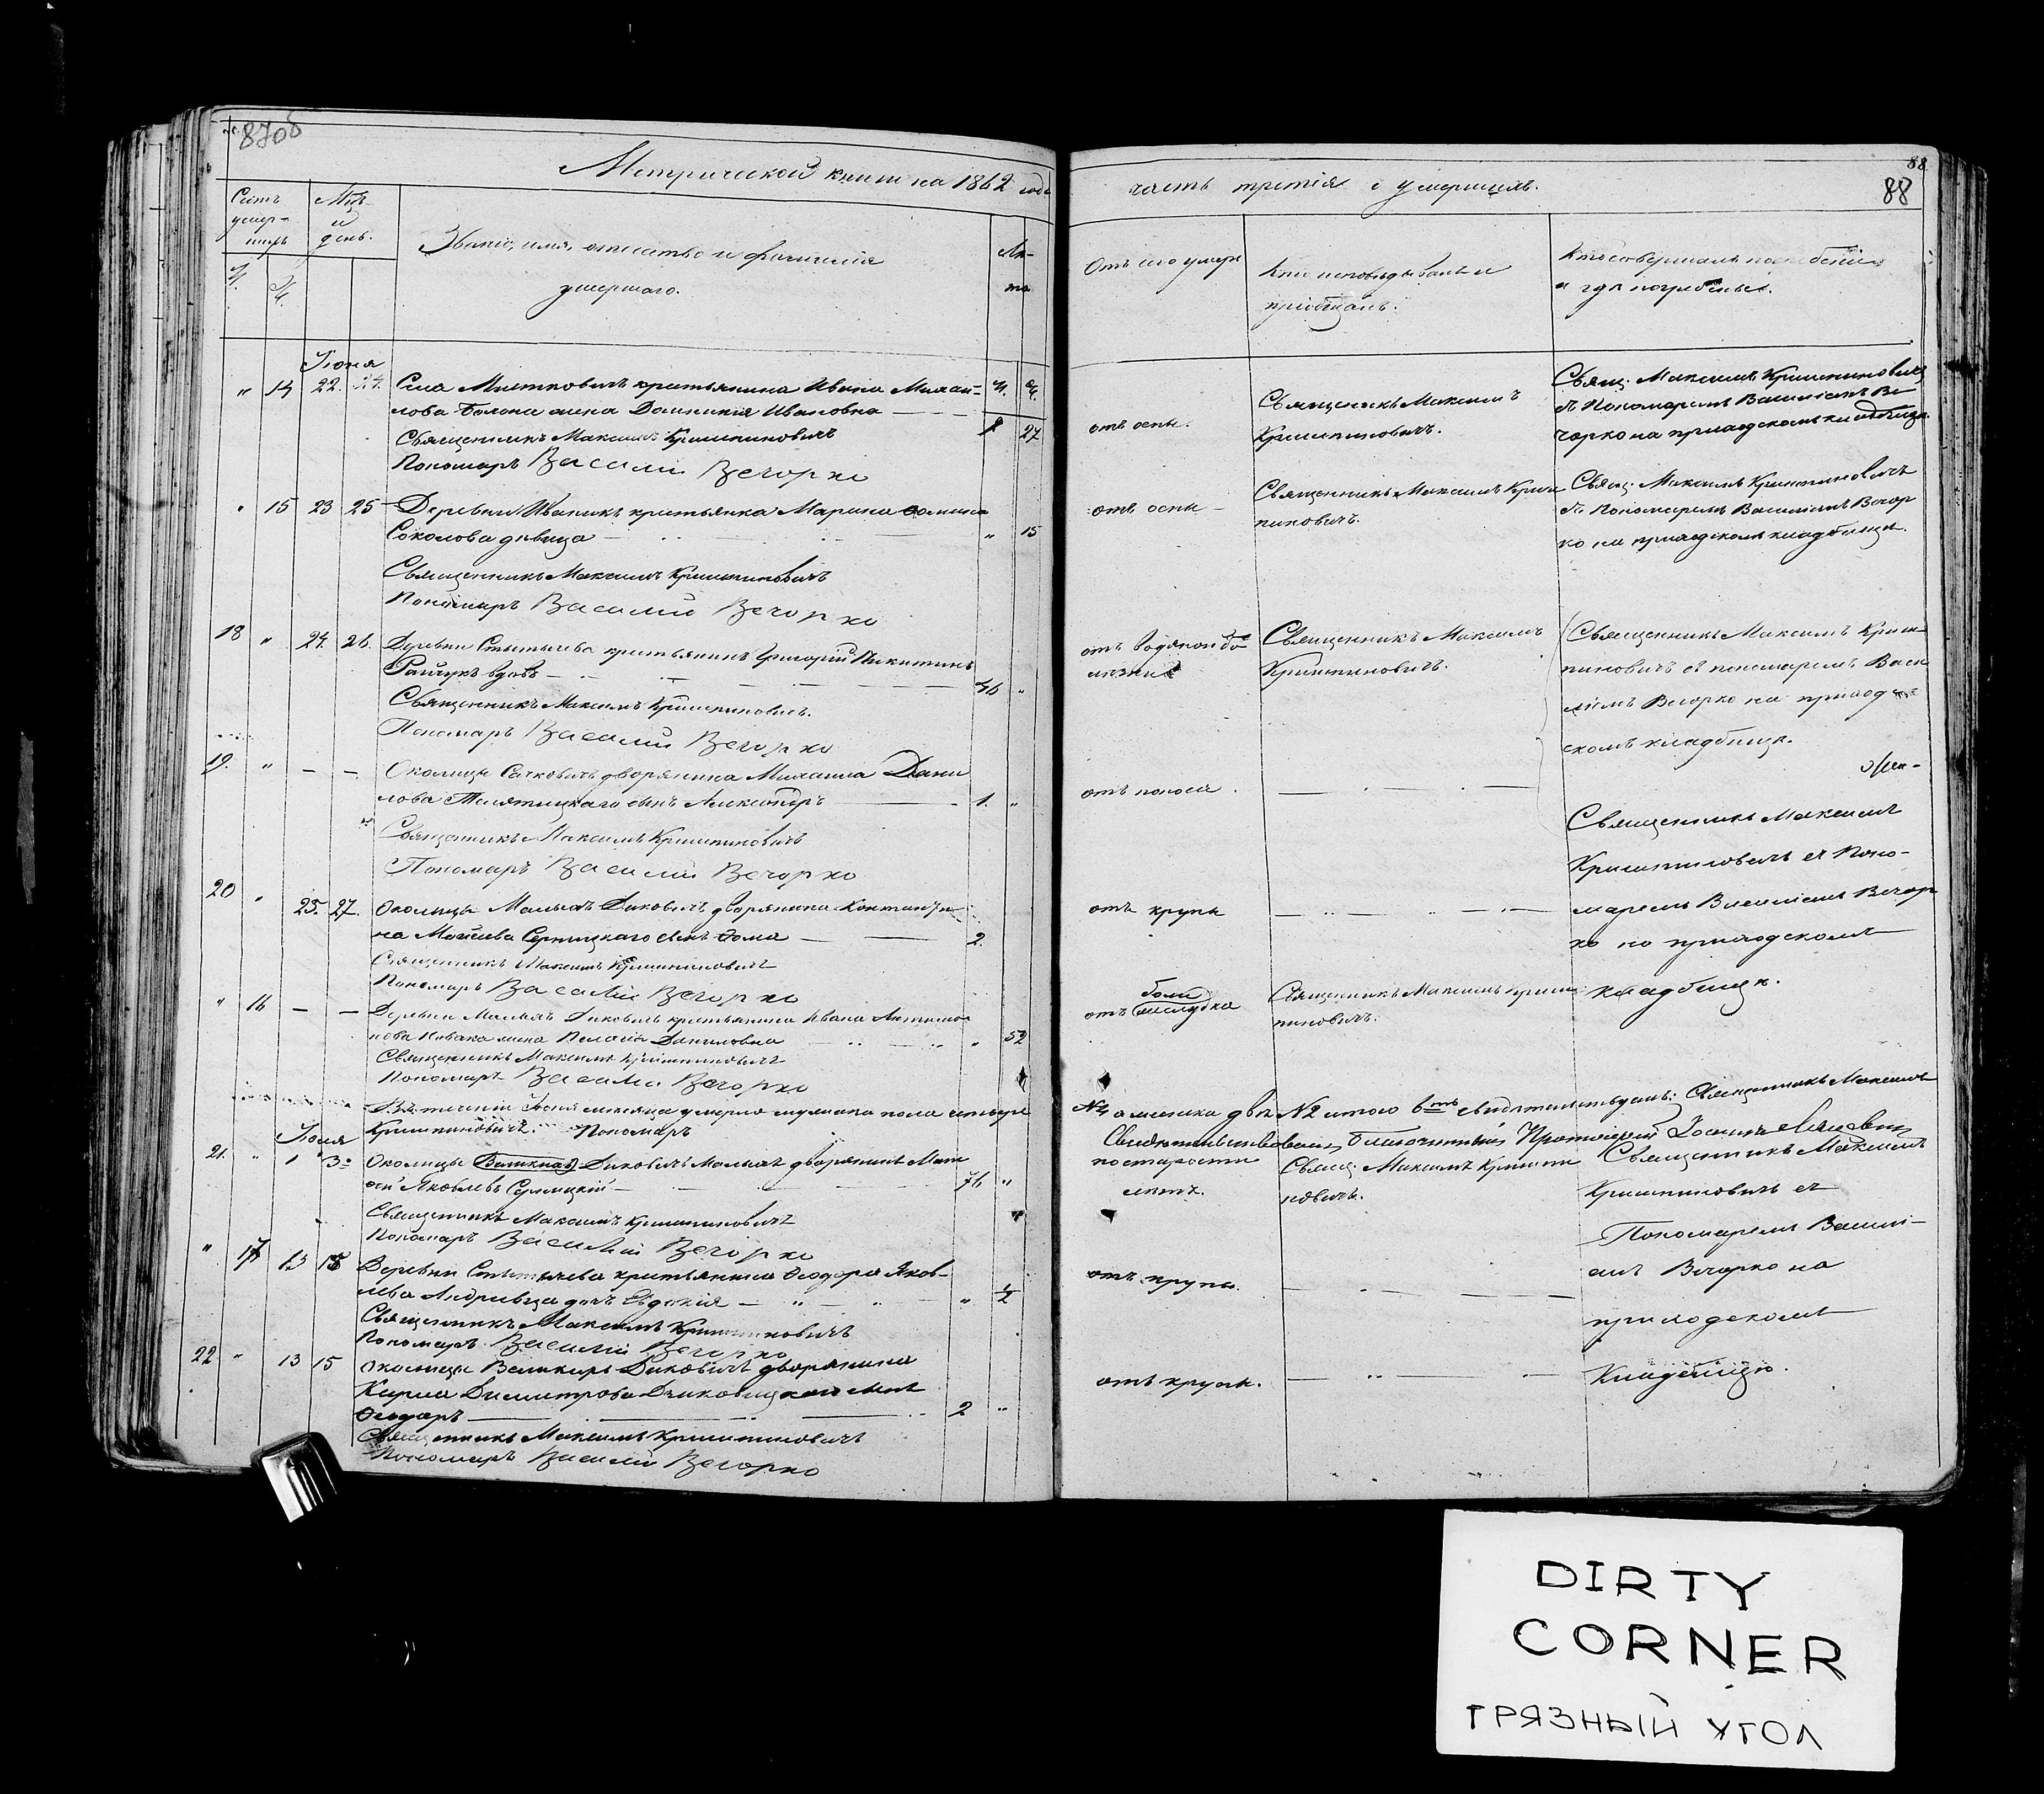 87об
Метрической книги на 1862 годъ
часть третія о умершихъ.
88
88
Счетъ умер-шихъ
Мѣс. и день.
Званіе, имя, отчество и фамилія умершаго.
Лѣ-та
Отъ чего умеръ
Кто исповѣдывалъ и пріобщалъ.
Кто совершалъ погребеніе и гдѣ погребены.
Іюня
" 14 22. 24. Села Мистковичъ крестьянина Ивана Михаи-
лова жена Домникія Ивановна 27
Священникъ Максимъ Криштиновичъ
Пономарь Василій Вечорко
отъ оспы.
Священникъ Максимъ
Криштиновичъ.
Свящ. Максимъ Криштиновичъ
съ Пономаремъ Василіемъ Ве-
чорко на приходскомъ кладбищѣ.
" 15 23 25 Деревни Иваникъ крестьянка Марина Ѳомина
Соколова дѣвица " 15
Священникъ Максимъ Криштиновичъ
Пономарь Василій Вечорко
отъ оспы
Священникъ Максимъ Кришти-
новичъ.
Свящ. Максимъ Криштиновичъ
съ Пономаремъ Василіемъ Вечор
ко на приходскомъ кладбищѣ.
18 " 24. 26. Деревни Стытычева крестьянинъ Григорій Никитинъ
вдовъ 46 "
Священникъ Максимъ Криштиновичъ.
Пономарь Василій Вечорко
отъ водяной бо
лѣзни
Священникъ Максимъ
Криштиновичъ.
Священникъ Максимъ Кришти-
новичъ съ пономаремъ Васи
ліемъ Вечорко на приход
скомъ кладбищѣ.
19. " — — Околицы Сачковичъ дворянина Михаила Дани
лова сынъ Александръ 1. "
Священникъ Максимъ Криштиновичъ
Пономарь Василій Вечорко
отъ поноса.
Священникъ Максимъ
Криштиновичъ съ Поно-
20 " 25. 27. Околицы Малыхъ Диковичъ дворянина Константи
на Моисеева Серницкаго сынъ Ѳома 2.
Священникъ Максимъ Криштиновичъ
Пономарь Василій Вечорко
отъ крупы
маремъ Василіемъ Вечор
ко на приходскомъ
кладбищѣ.
" 16 — — Деревни Малыхъ Диковичъ крестьянина Ивана
Новака жена Пелагія Даниловна " 52
Священникъ Максимъ Криштиновичъ
Пономарь Василій Вечорко
отъ боли желудка
Священникъ Максимъ Кришти
новичъ.
Въ теченіи Іюня мѣсяца умерло мужеска пола четыре
№4 а женска два №2 итого 6ть свидѣтельствуемъ: Священникъ Максимъ
Криштиновичъ. Пономарь
Свидѣтельствовалъ, Благочинный Протоіерей Іоаннъ
Іюля
21. " 1 3 Околицы Диковичъ Малыхъ дворянинъ Мат
ѳей Яковлевъ Серницкій 76 "
Священникъ Максимъ Криштиновичъ
Пономарь Василій Вечорко
по старости
лѣтъ.
Свящ. Максимъ Кришти
новичъ.
Священникъ Максимъ
Криштиновичъ съ
Пономаремъ Васили-
емъ Вечорко на
приходскомъ
Кладбищѣ.
" 17 13 15 Деревни Стытычева крестьянина Ѳеодора Яков-
лева дочь Евдокія " 1/2
Священникъ Максимъ Криштиновичъ
Пономарь Василій Вечорко
отъ крупы.
22 " 13 15 Околицы Великихъ Диковичъ дворянина
Кирила Димитрова Диковицкаго сынъ
Ѳеодоръ 2 "
Священникъ Максимъ Криштиновичъ
Пономарь Василій Вечорко
отъ крупы.
DIRTY
CORNER
ГРЯЗНЫЙ УГОЛ